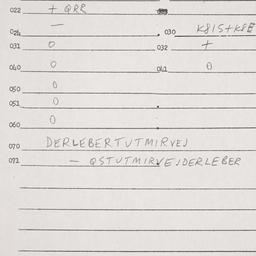 022 + QRR
024 — 030 K815+K8E
031 0 032 +
040 0 041 0
050 0
051 0
060 0
070 DERLEBERTUTMIRVEJ
072 — QSTUTMIRVEJDERLEBER